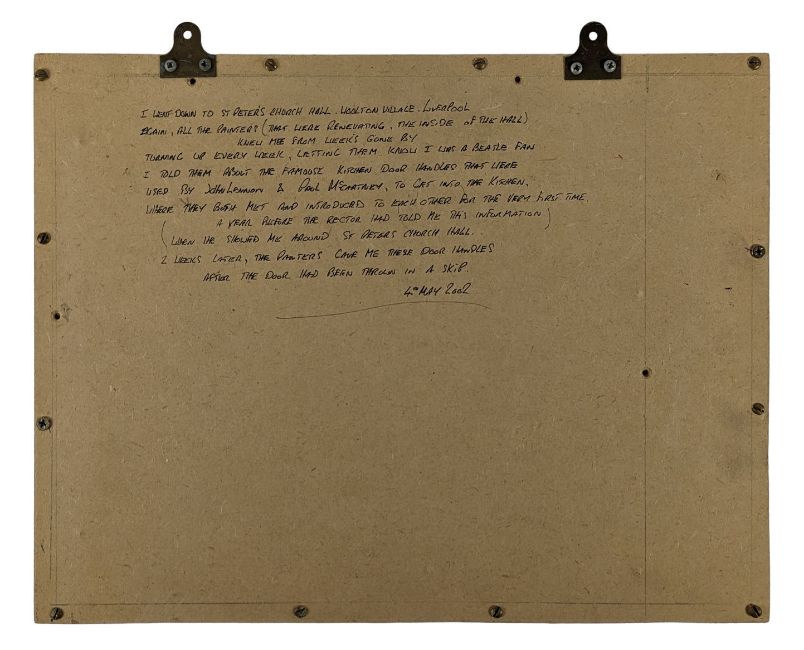 I WENT DOWN TO ST PETER'S CHURCH HALL. WOOLTON VILLAGE. LIVERPOOL
AGAIN, ALL THE PAINTERS (THAT WERE RENEVATING, THE INSIDE OF THE HALL)
KNEW MEE FROM WEEK'S GONE BY
TURNING UP EVERY WEEK, LETTING THEM KNOW I WAS A BEATLE FAN
I TOLD THEM ABOUT THE FAMOUSE KITCHEN DOOR HANDLES THAT WERE
USED BY JOHN LENNON & PAUL McCARTNEY, TO GET INTO THE KITCHEN,
WHERE THEY BOTH MET AND INTRODUCED TO EACH OTHER FOR THE VERY FIRST TIME.
A YEAR BEFORE THE RECTOR HAD TOLD ME THIS INFORMATION)
(WHEN HE SHOWED ME AROUND ST PETERS CHURCH HALL.
2 WEEKS LATER, THE PAINTERS GAVE ME THESE DOOR HANDLES
AFTER THE DOOR HAD BEEN THROWN IN A SKIP.
4TH MAY 2002